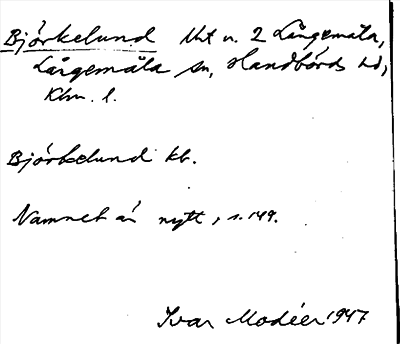 Björkelund Uht u. 2 Långemåla,
Långemåla sn, Handbörds hd,
Klm. l.
Björkelund kb.
Namnet är nytt, s. 149.
Ivar Modéer 1947